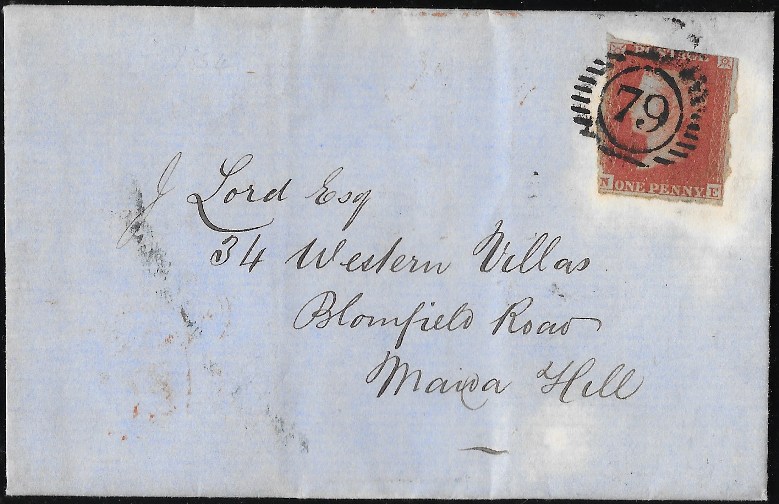 POSTAGE
79
N ONE PENNY E
J Lord Esq
34 Western Villas
Blomfield Road
Maida Hill